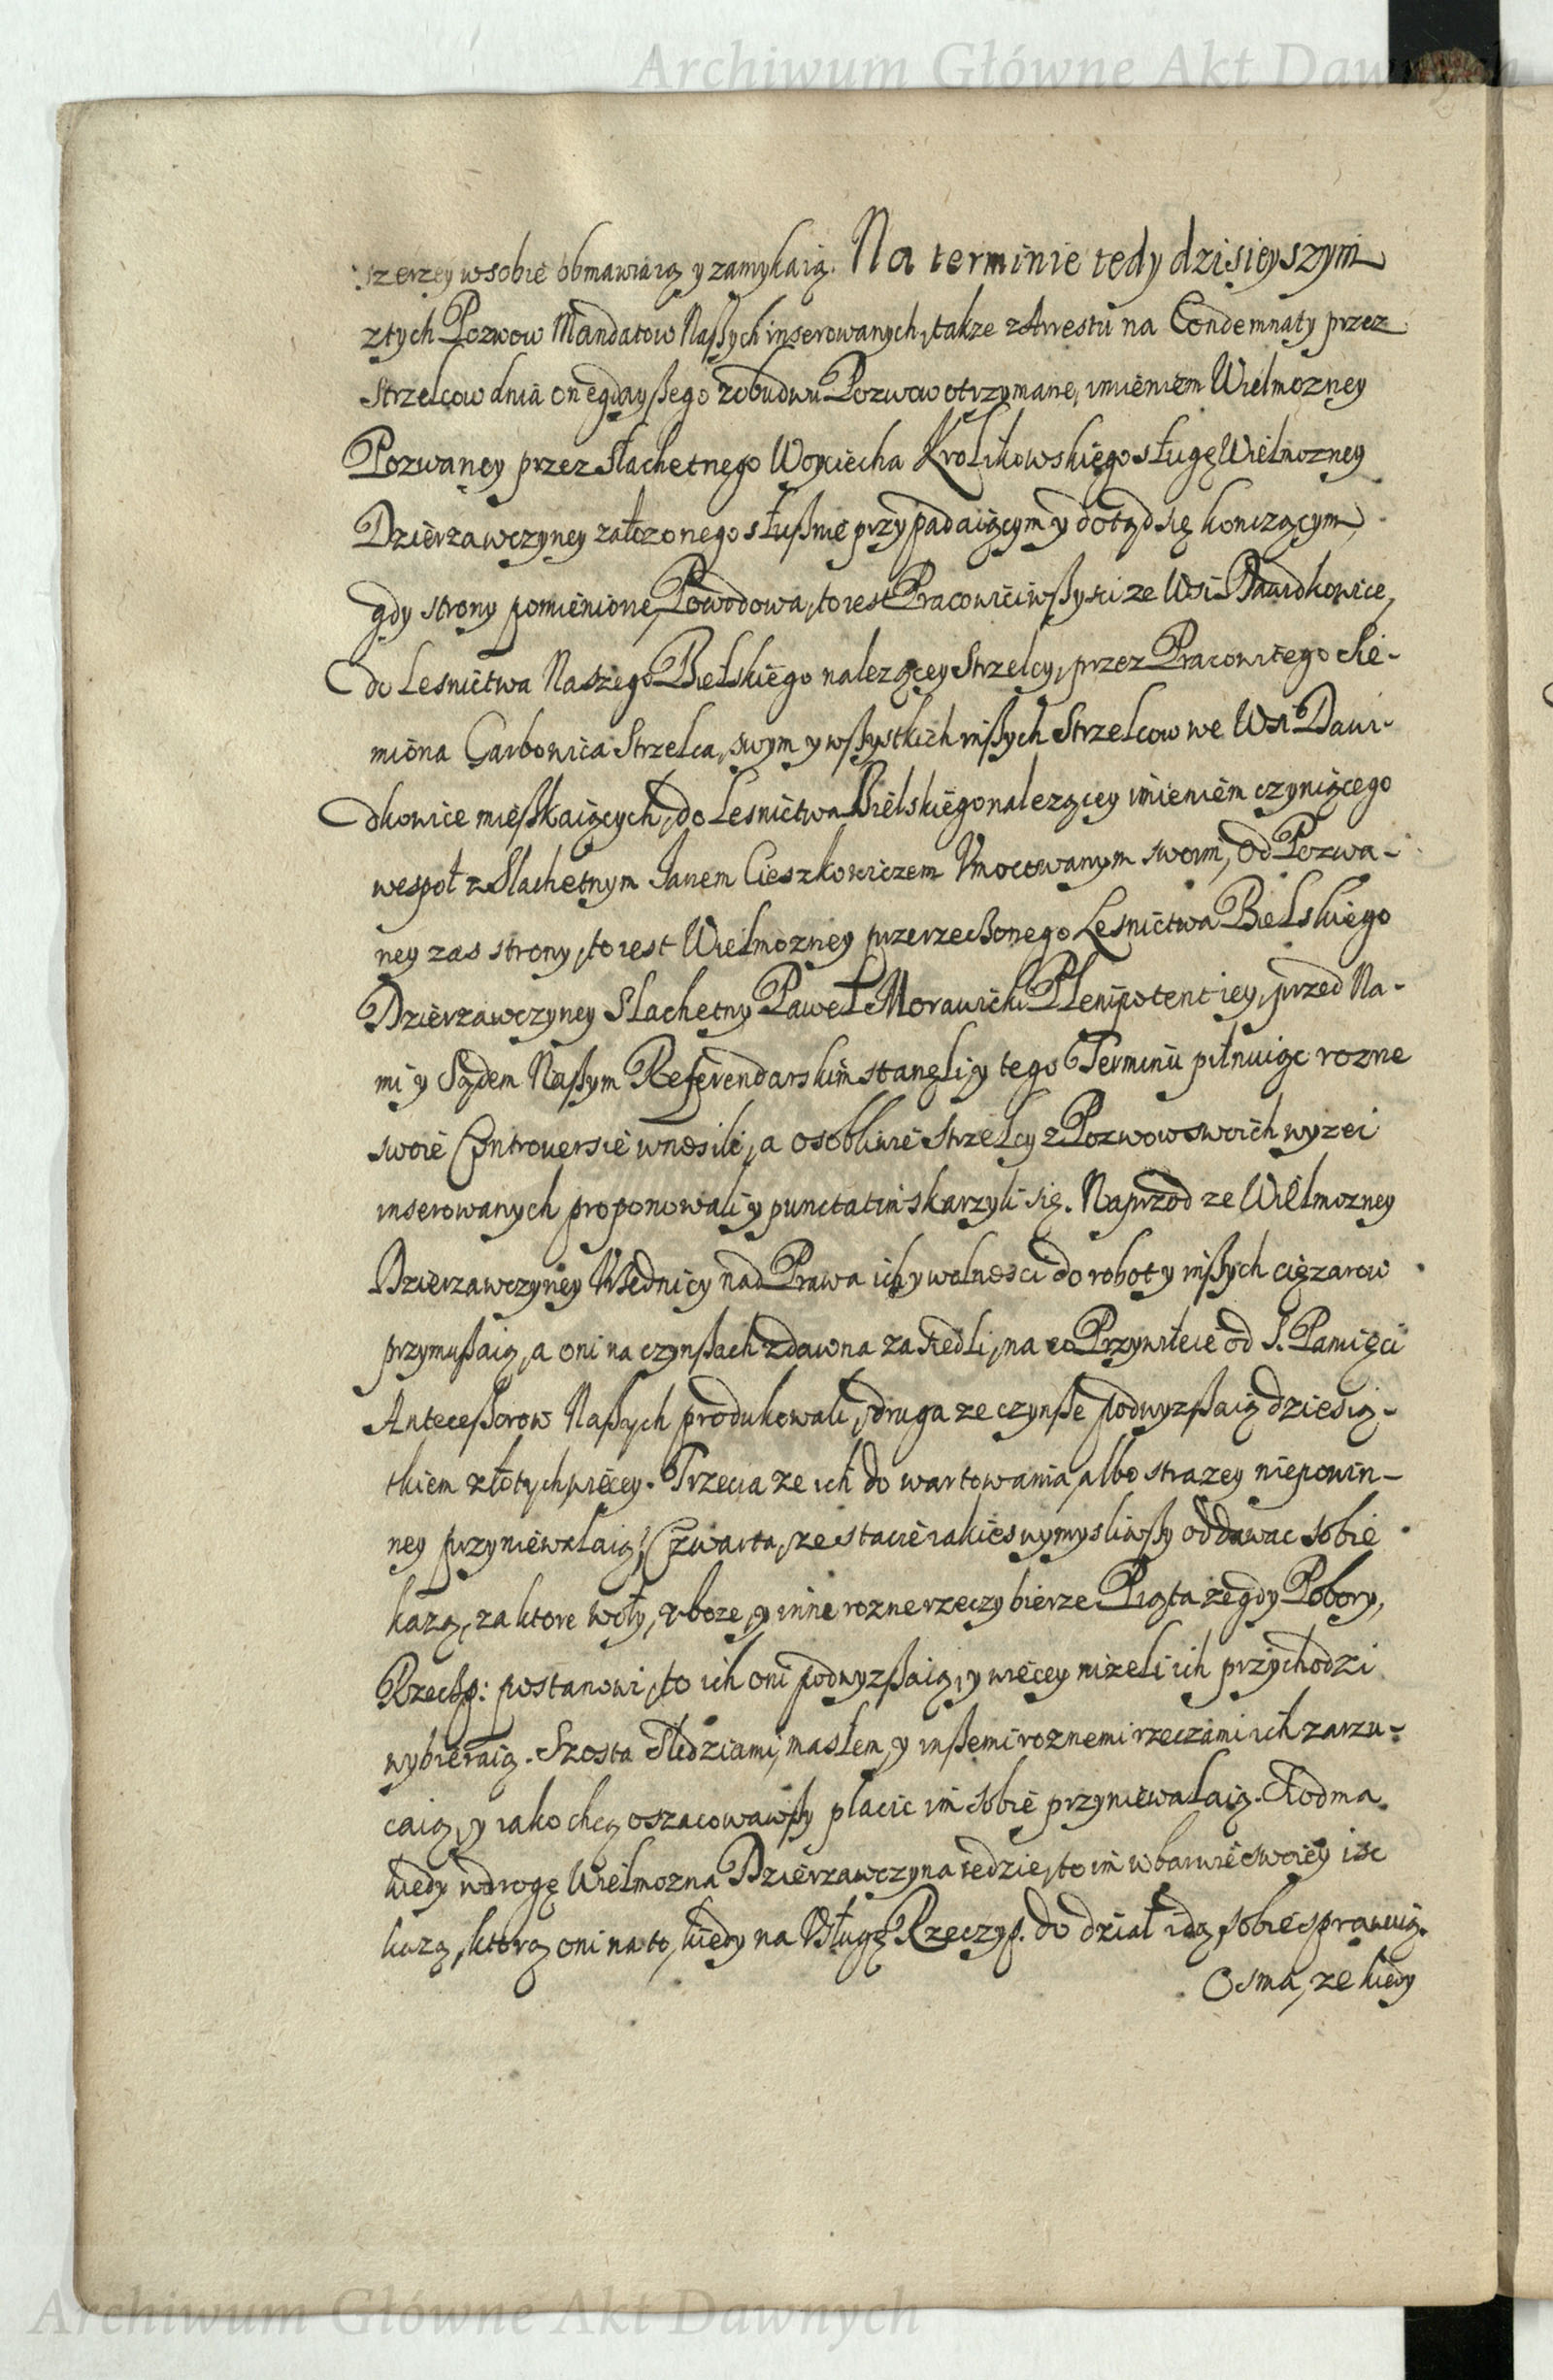 Archiwum Główne Akt Dawnych
szerzey w sobie obmawiaią y zamykaią. Na terminie tedy dzisieyszym
z tych Pozwow Mandatow Naßych inserowanych, także z Arrestu na Condemnaty przez
Strzelcow dnia onegdayßego z obudwu Pozwow otrzymane, imieniem Wielmozney
Pozwaney przez Slachetnego Woyciecha Krolikowskiego sługę Wielmozney
Dzierzawczyney załozonego słußnie przypadaiącym y dotąd się konczącym,
gdy strony pomienione, Powodowa, to iest Pracowici wßyscy ze Wsi Dawidkowice,
do Lesnictwa Naszego Bielskiego nalezącey Strzelcy, przez Pracowitego Sie-
miona Garbowica Strzelca, swym y wßystkich inßych Strzelcow we Wsi Dawi-
dkowice mießkaiących, do Lesnictwa Bielskiego nalezącey imieniem czyniącego
wespoł z Slachetnym Janem Cieszkowiczem Umocowanym swoim, od Pozwa-
ney zas strony, to iest Wielmozney przerzeczonego Lesnictwa Bielskiego
Dzierzawczyney Slachetny Paweł Morawicki Plenipotent iey, przed Na-
mi y Sądem Naßym Referendarskim stanęli, y tego Terminu pilnuiąc rozne
swoie Controversie wnosili, a osobliwie Strzelcy z Pozwow swoich wyzei
inserowanych proponowali y punctatim skarzyli się. Naprzod ze Wielmozney
Dzierzawczyney Urzednicy nad Prawa ich y wolnosci do roboty inßych cięzarow
przymußaią, a oni na czynßach zdawna zasiedli, na co Przywileie od S. Pamięci
Anteceßorow Naßych produkowali, druga ze czynße podwyzßaią dziesią-
tkiem złotych więcey. Trzecia ze ich do wartowania albo strazey niepowin-
ney przyniewalaią, Czwarta, ze stacie iakies wymysliwßy oddawac sobie
kazą, za ktore woły, zboze, y inne rozne rzeczy bierze Piąta ze gdy Pobory,
Rzeczp: postanowi, to ich oni podwyzßaią, y więcey nizeli ich przychodzi
wybieraią. Szosta Sledziami, masłem, y inßemi roznemi rzeczami ich zarzu-
caią, y iako chcą oszacowawßy placic im sobie przyniewalaią. Siodma.
kiedy w drogę Wielmozna Dzierzawczyna iedzie, to im w barwie swoiey isc
kazą, ktorą oni na to, kiedy na Usługę Rzeczyp. do dział idą, sobie sprawuią.
Osma, ze kiedy
Archiwum Główne Akt Dawnych